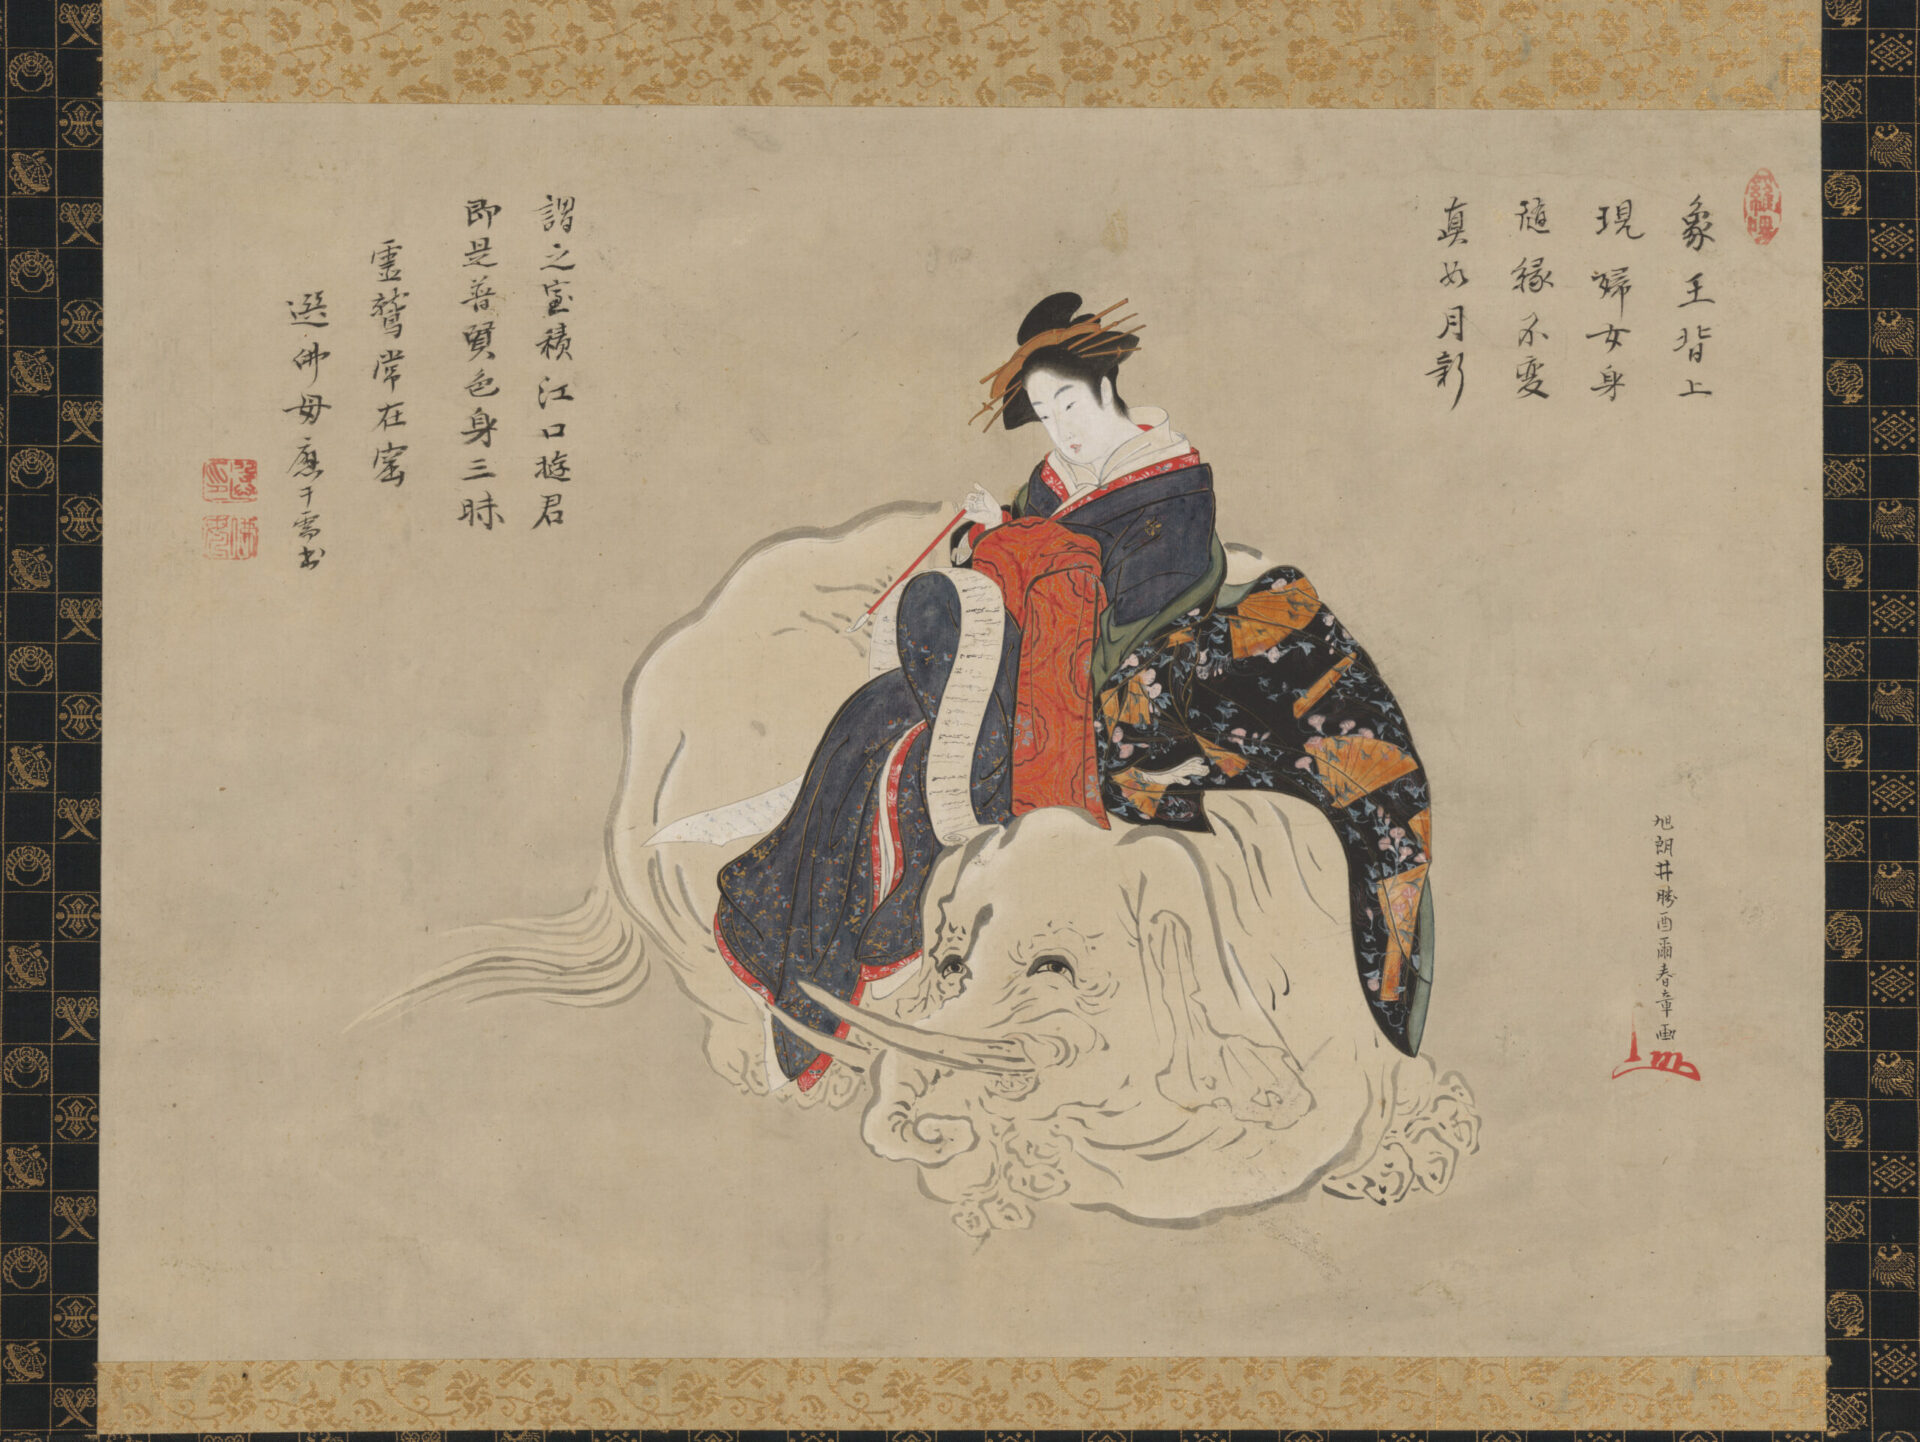 象王背上
現婦女身
随縁不変
真如月新
謂之室積江口遊君
即是普賢色身三昧
霊鷲常在室
選佛母應于需書
旭朗井勝酉爾春章画